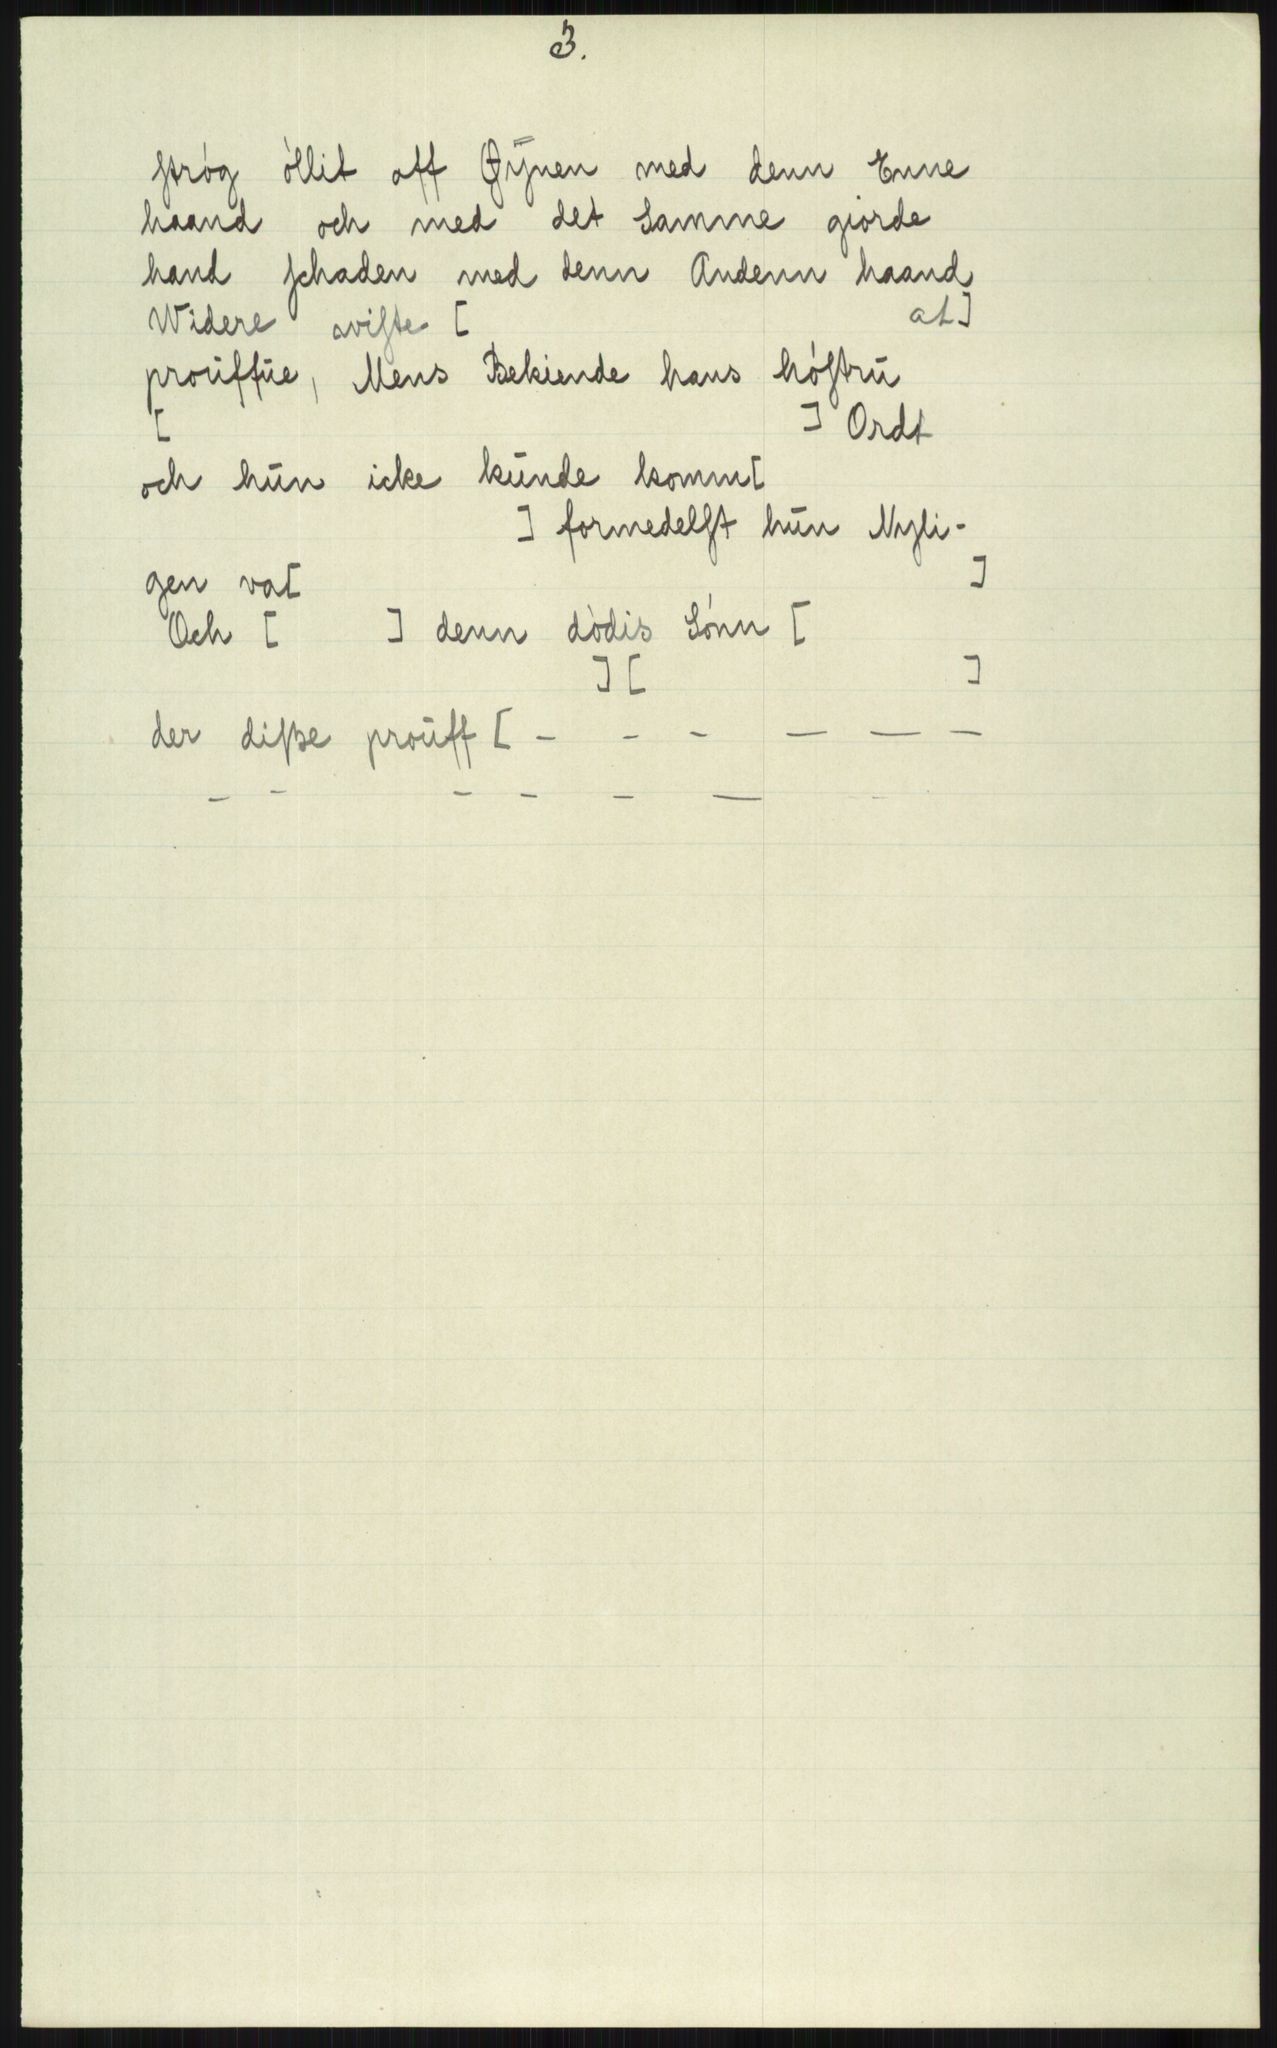 3.
ſtróg óllit aff Øÿnen med denn Enne
haand och med det Samme giorde
hand ſchaden med denn Andenn haand
Widere aviſte [ at]
proŭffŭe, Mens Bekiende hans hóſtrŭ
[ ] Ordt
och hŭn icke kŭnde komm[
] formedelſt hŭn Nyli-
gen va[ ]
Och [ ] denn dódis Sónn [
] [ ]
der diſse proŭff [ - - - - - -
- - - - - -